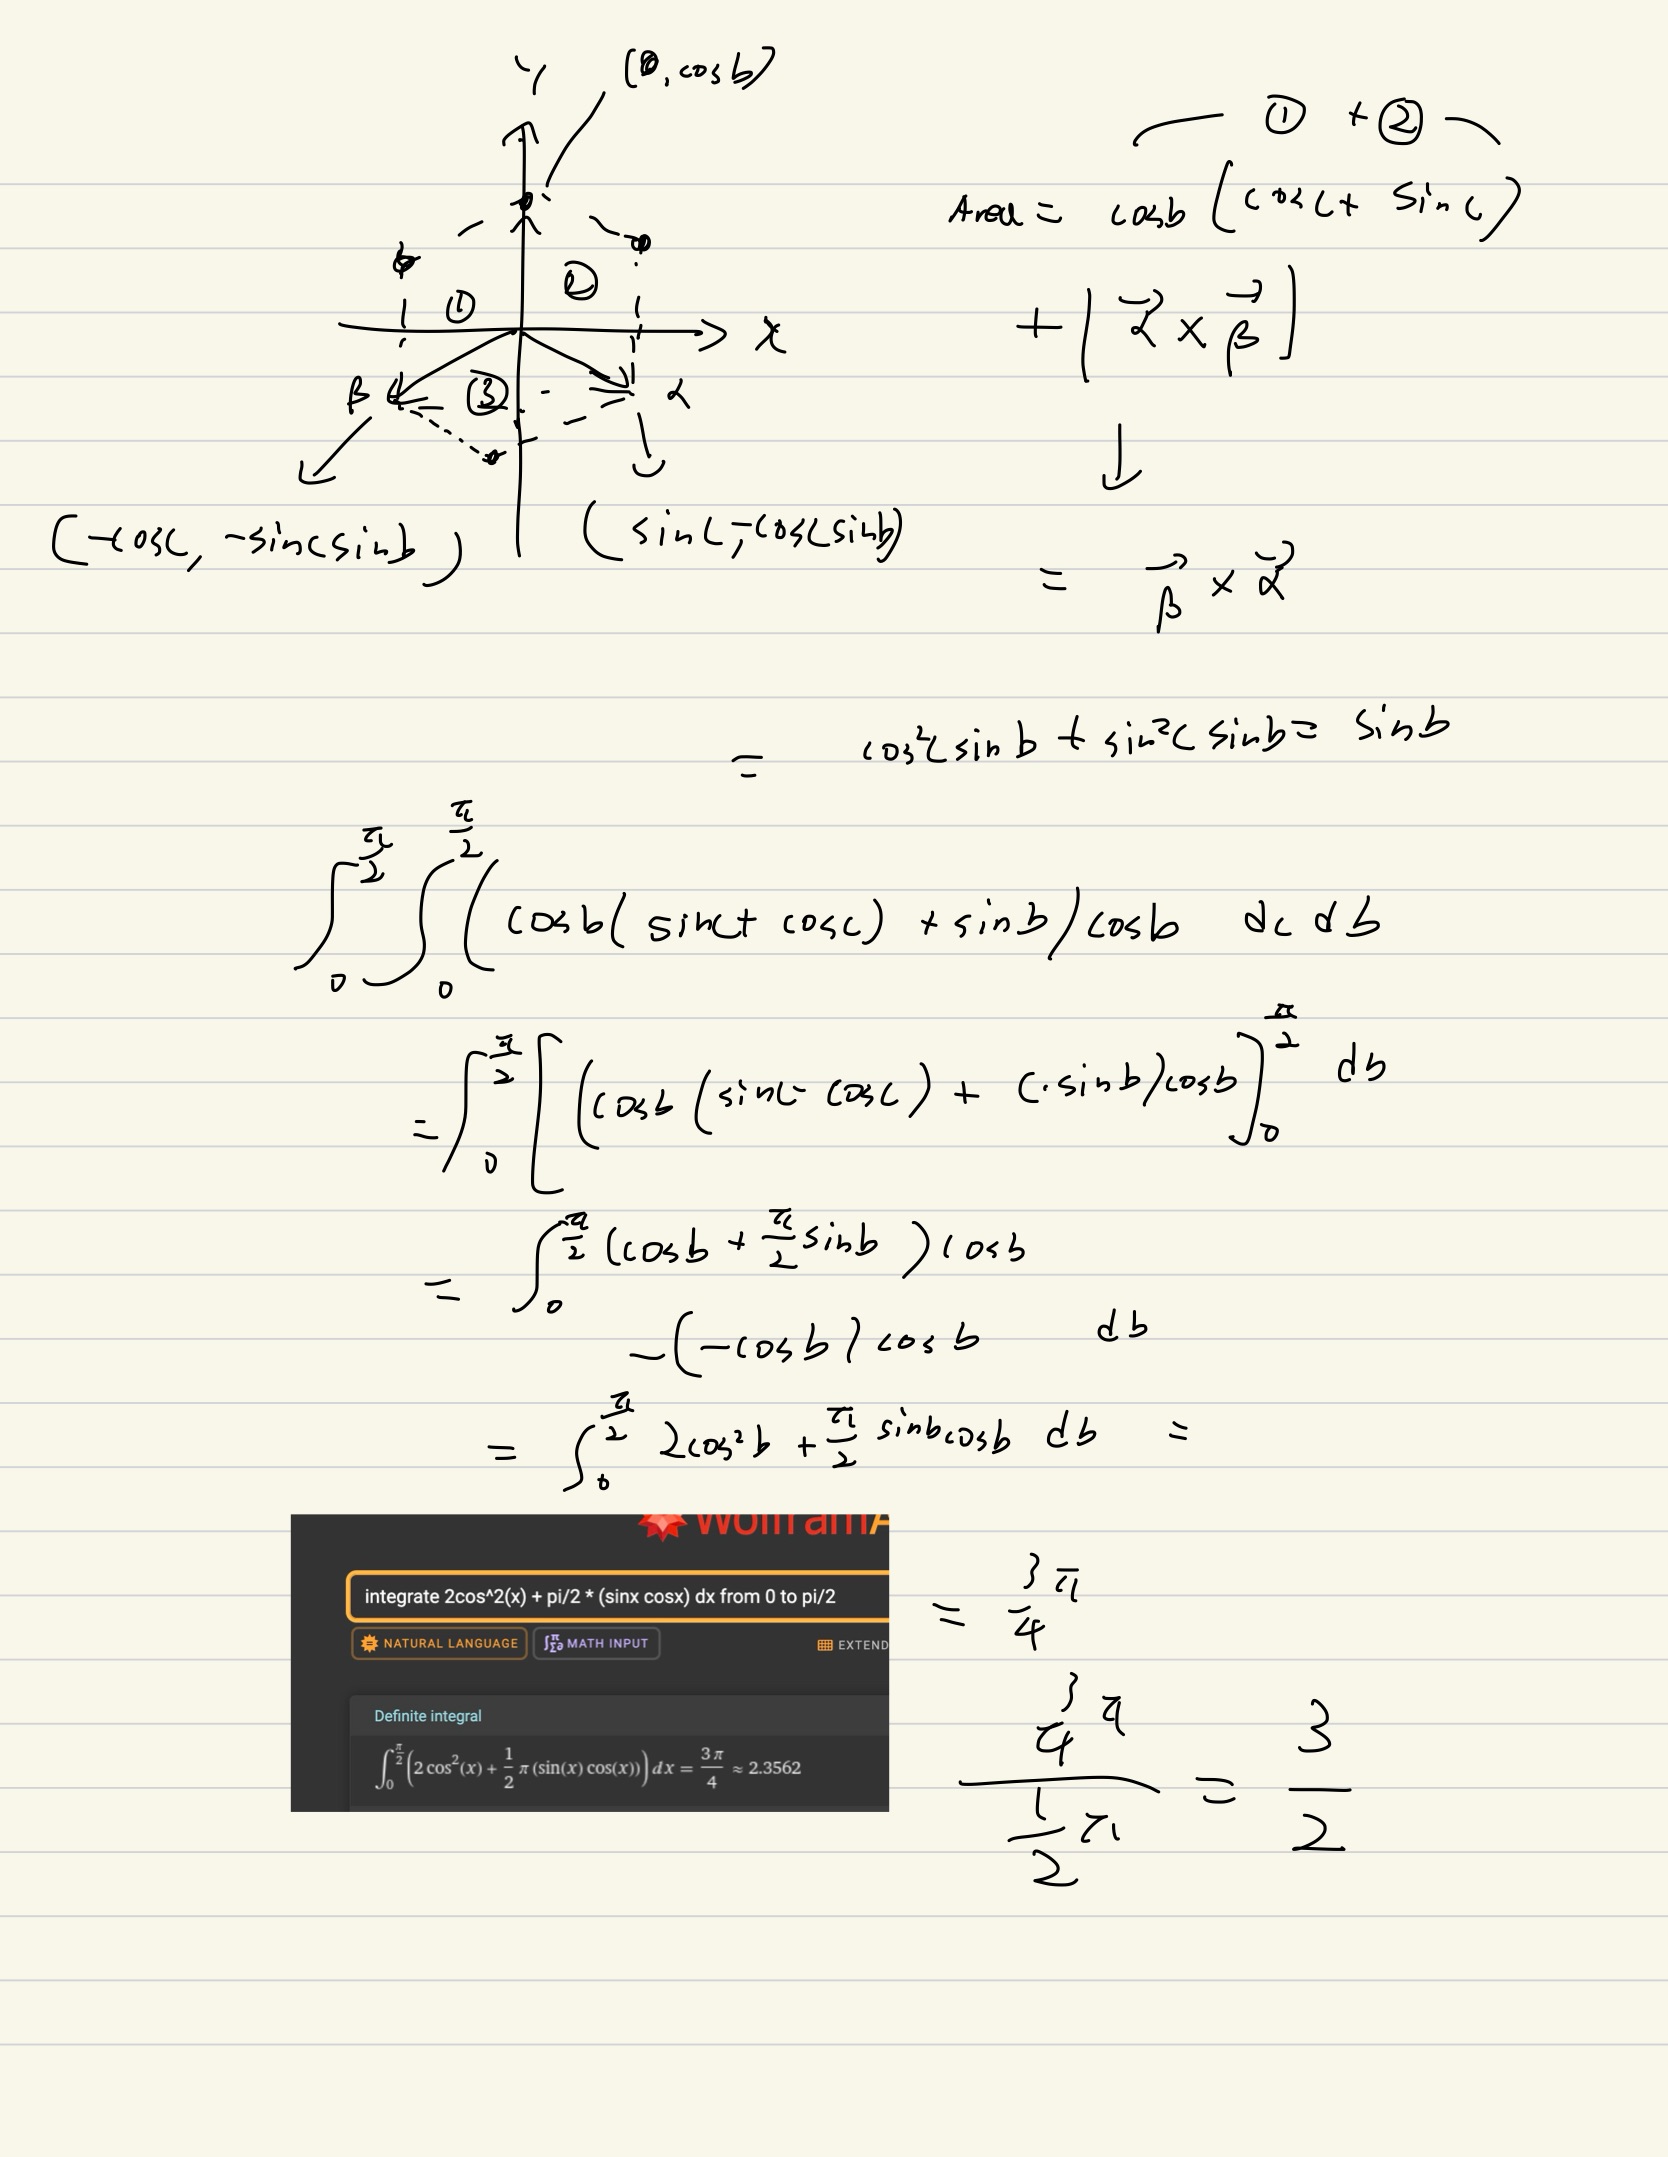 Y (0, cosb)
① + ②
Area = cosb (cosc + sinc)
① ②
X
+ | α⃗ × β⃗ |
β ③ α
↓
(-cosc, -sincsinb) (sinc, -coscsinb)
= β⃗ × α⃗
= cos²c sinb + sin²c sinb = sinb
∫₀^(π/2) ∫₀^(π/2) (cosb(sinc + cosc) + sinb) cosb dc db
= ∫₀^(π/2) [(cosb (sinc - cosc) + c·sinb) cosb]₀^(π/2) db
= ∫₀^(π/2) (cosb + π/2 sinb) cosb
-(-cosb) cosb db
= ∫₀^(π/2) 2cos²b + π/2 sinbcosb db =
WolframA
integrate 2cos^2(x) + pi/2 * (sinx cosx) dx from 0 to pi/2
NATURAL LANGUAGE MATH INPUT EXTEND
Definite integral
∫₀^(π/2) (2 cos²(x) + 1/2 π (sin(x) cos(x))) dx = 3π/4 ≈ 2.3562
= 3/4 π
(3/4 π)/(1/2 π) = 3/2